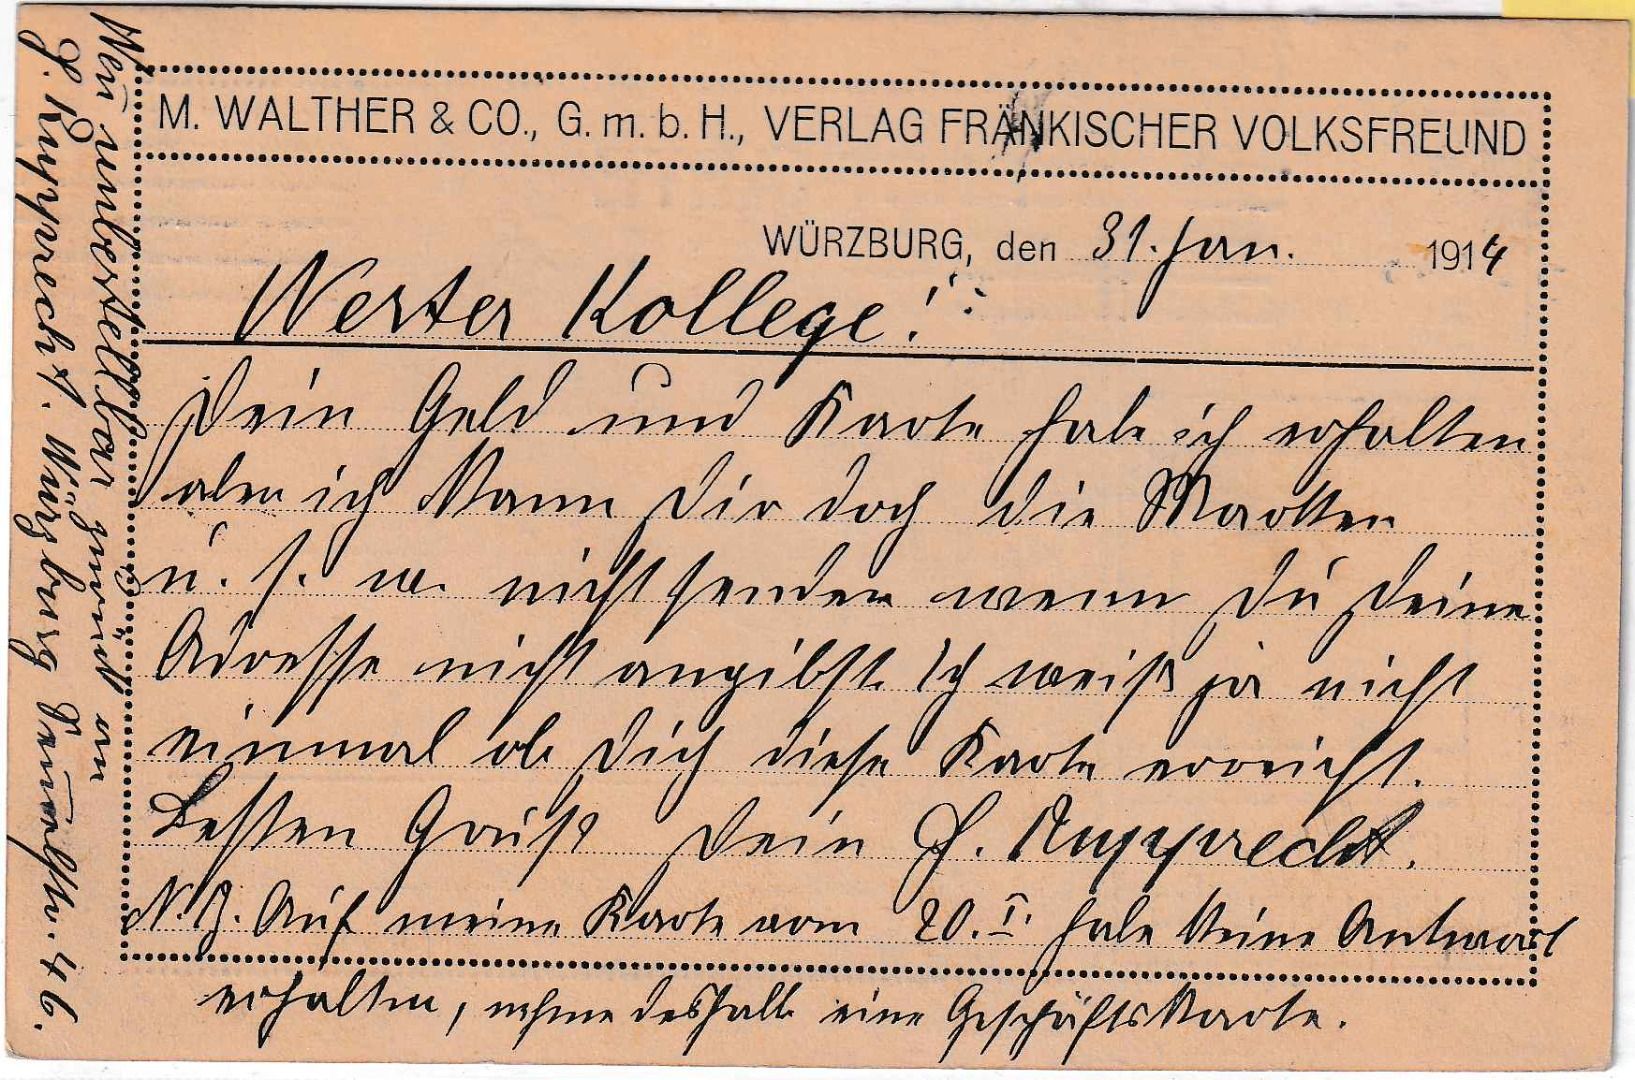 M. WALTHER & CO., G. m. b. H., VERLAG FRÄNKISCHER VOLKSFREUND
WÜRZBURG, den 31. Jan. 1914
Werter Kollege!
Dein Geld und Karte habe ich erhalten
aber ich kann Dir doch die Marken
u. s. w. nicht senden wenn Du Deine
Adresse nicht angibst. Ich weiß ja nicht
einmal ob Dich diese Karte erreicht.
Besten Gruß Dein H. Rupprecht.
N.B. Auf meine Karte vom 20. I. habe keine Antwort
erhalten, nehme deshalb eine Geschäftskarte.
Wen unbestellbar zurück an
H. Rupprecht. Würzburg 46.